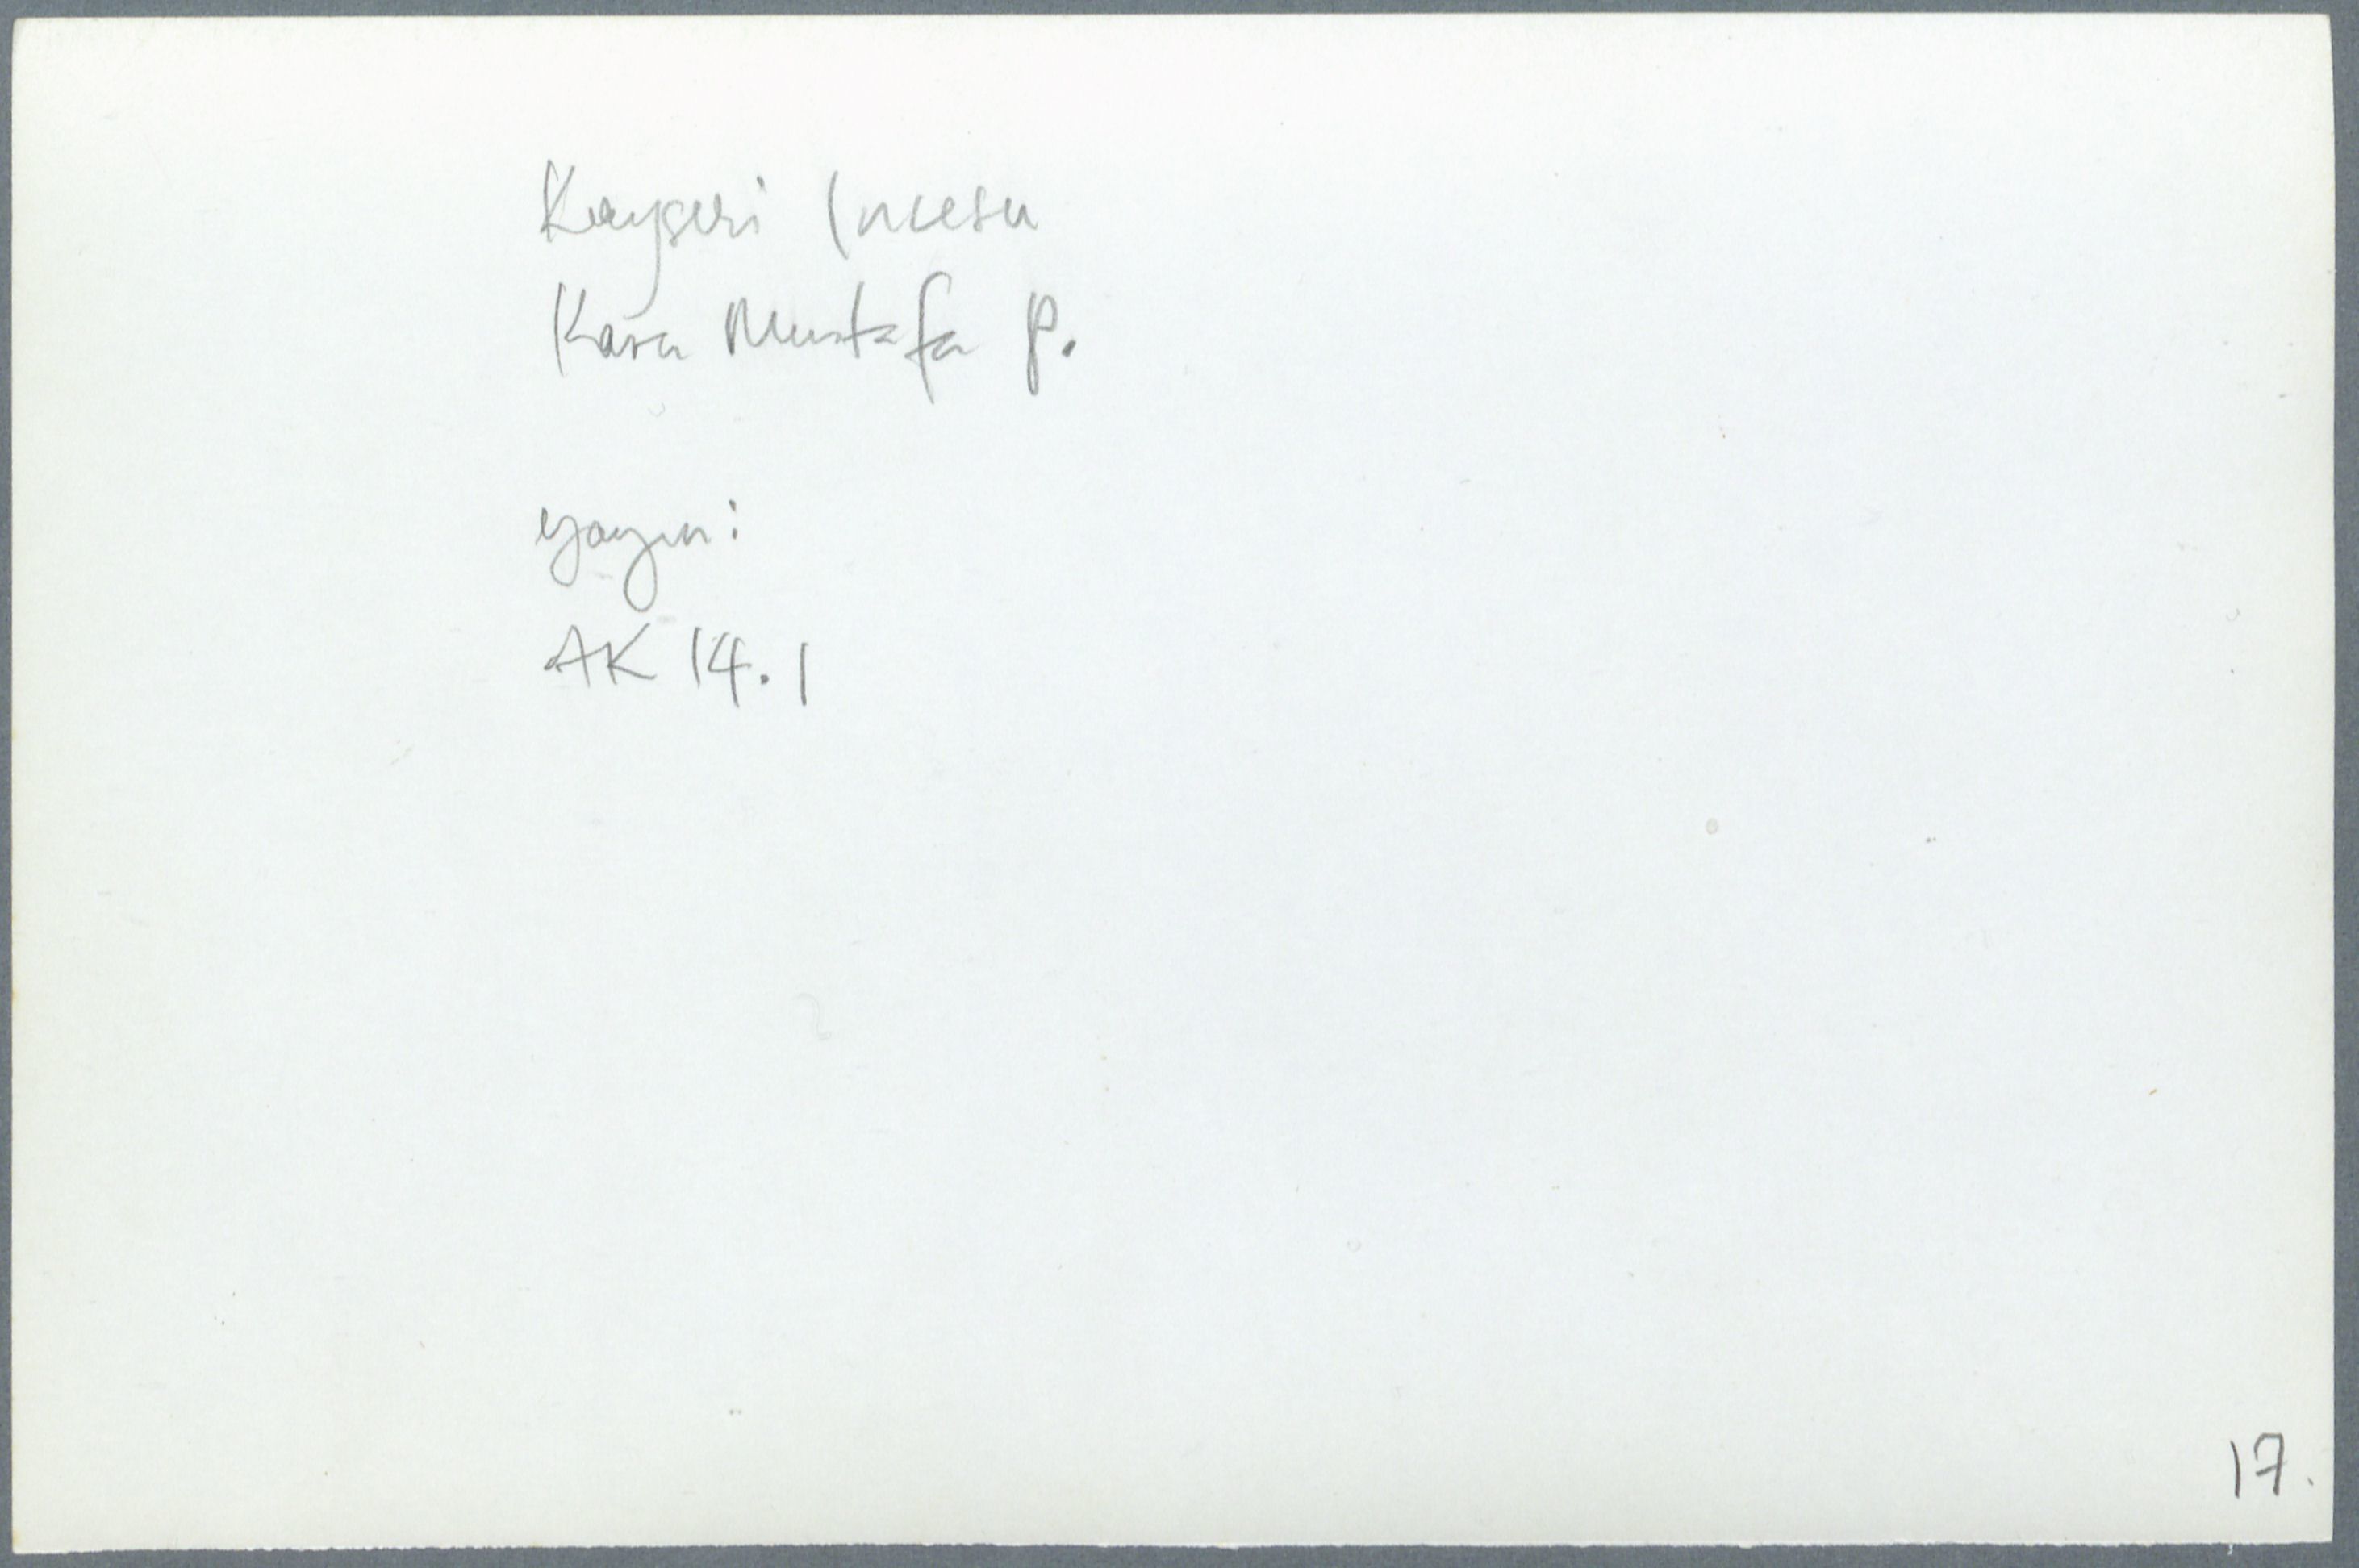 Kayseri Incesu
Kara Mustafa P.
yayın:
AK 14.1
17.